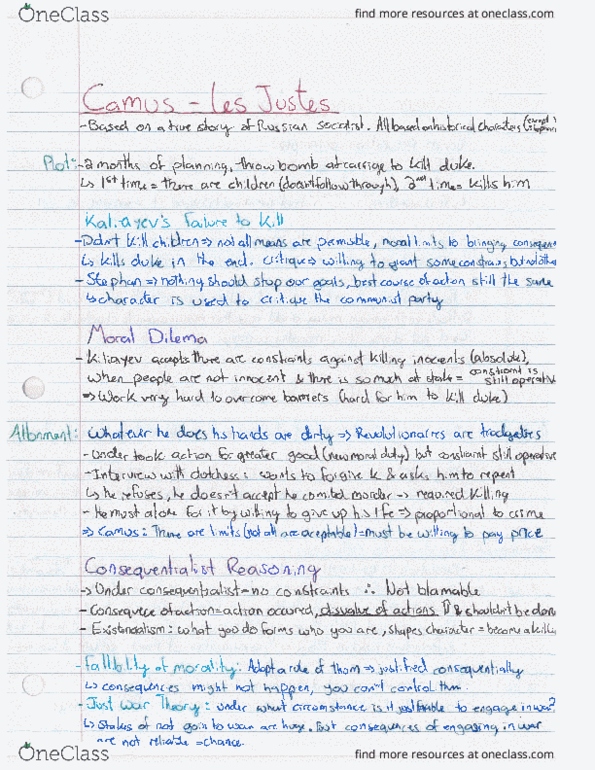 OneClass
find more resources at oneclass.com
Camus - Les Justes
-Based on a true story of Russian socialist. All based on historical characters (except
Plot:-2 months of planning, throw bomb at carriage to kill duke.
↳ 1st time = there are children (doesn't follow through), 2nd time = kills him
Kaliayev's failure to kill
-Didn't kill children => not all means are permisible, moral limits to bringing consequen
↳ kills duke in the end. critique => willing to grant some constrains but not others
-Stephan => nothing should stop our goals, best course of action still the same
↳ character is used to critique the communist party
Moral Dilema
-Kiliayev accepts there are constraints against killing inocents (absolute),
when people are not innocent & there is so much at stake = constraint is still operative
=> Work very hard to overcome barriers (hard for him to kill duke)
Attonment: Whatever he does his hands are dirty => Revolutionaries are tradgeties
-Under took action for greater good (new moral duty) but constraint still operative
-Interview with dutchess: wants to forgive k & asks him to repent
↳ he refuses, he doesn't accept he comited morder -> required killing
-He must atone for it by willing to give up his life => proportional to crime
=> Camus: There are limits (not all are aceptable) = must be willing to pay price
Consequentialist Reasoning
-> Under consequentialist = no constraints ∴ Not blamable
-Consequece of action = action occurred, disvalue of actions & shouldn't be done
-Existentialism: what you do forms who you are, shapes character = become a killer
-Fallibility of morality: Adopt a role of them => justified consequentially
↳ consequences might not happen, you can't control them.
-Just war Theory: under what circumstance is it justifiable to engage in war?
↳ Stakes of not goin to war are huge. But consequences of engaging in war
are not reliable = chance.
OneClass
find more resources at oneclass.com